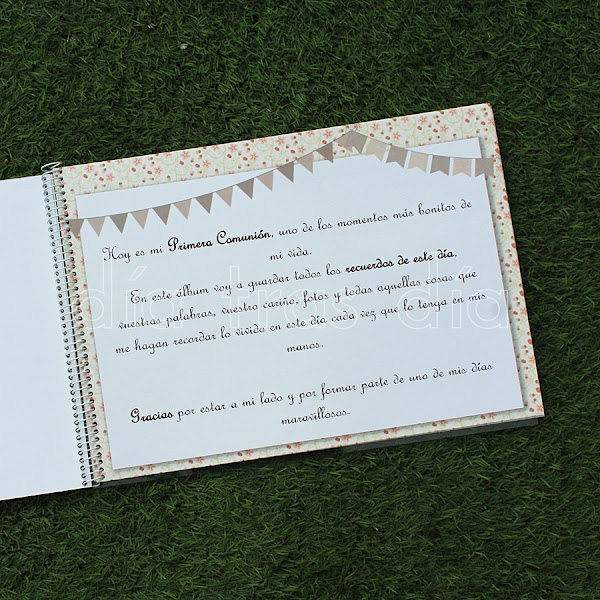 Hoy es mi Primera Comunión, uno de los momentos más bonitos de
mi vida.
En este álbum voy a guardar todos los recuerdos de este día,
vuestras palabras, vuestro cariño, fotos y todas aquellas cosas que
me hagan recordar lo vivido en este día cada vez que lo tenga en mis
manos.
Gracias por estar a mi lado y por formar parte de uno de mis días
maravillosos.
día tras día